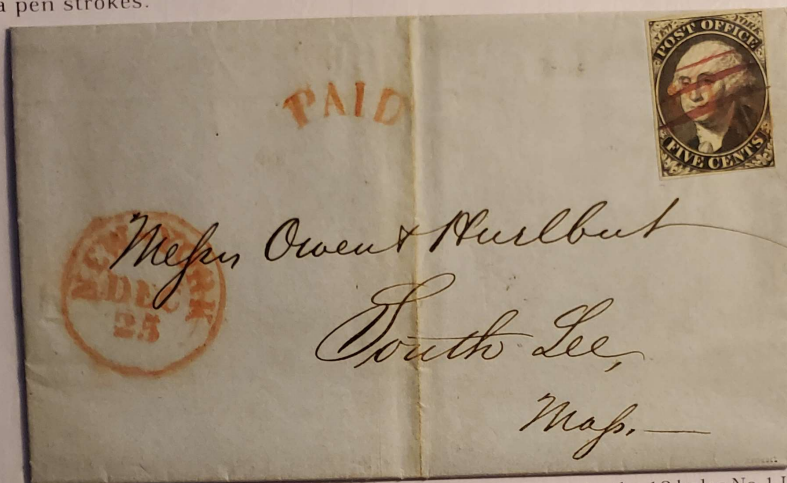 a pen strokes.
POST OFFICE
FIVE CENTS
PAID
NEW YORK
DEC
25
Messrs Owen & Hurlbut
South Lee,
Mass.
No 1